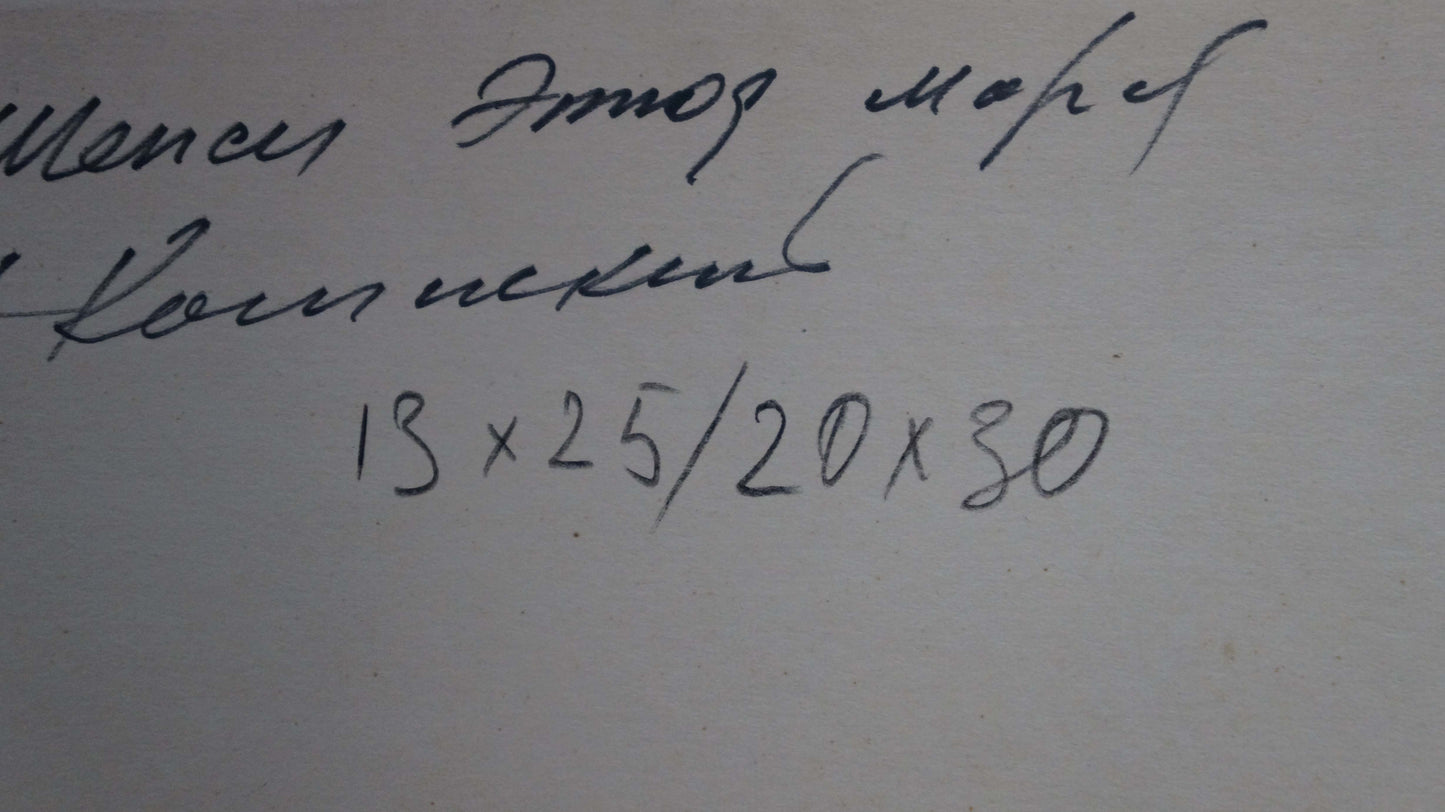 Шепси Этюд моря
Копинский
13 x 25/20 x 30